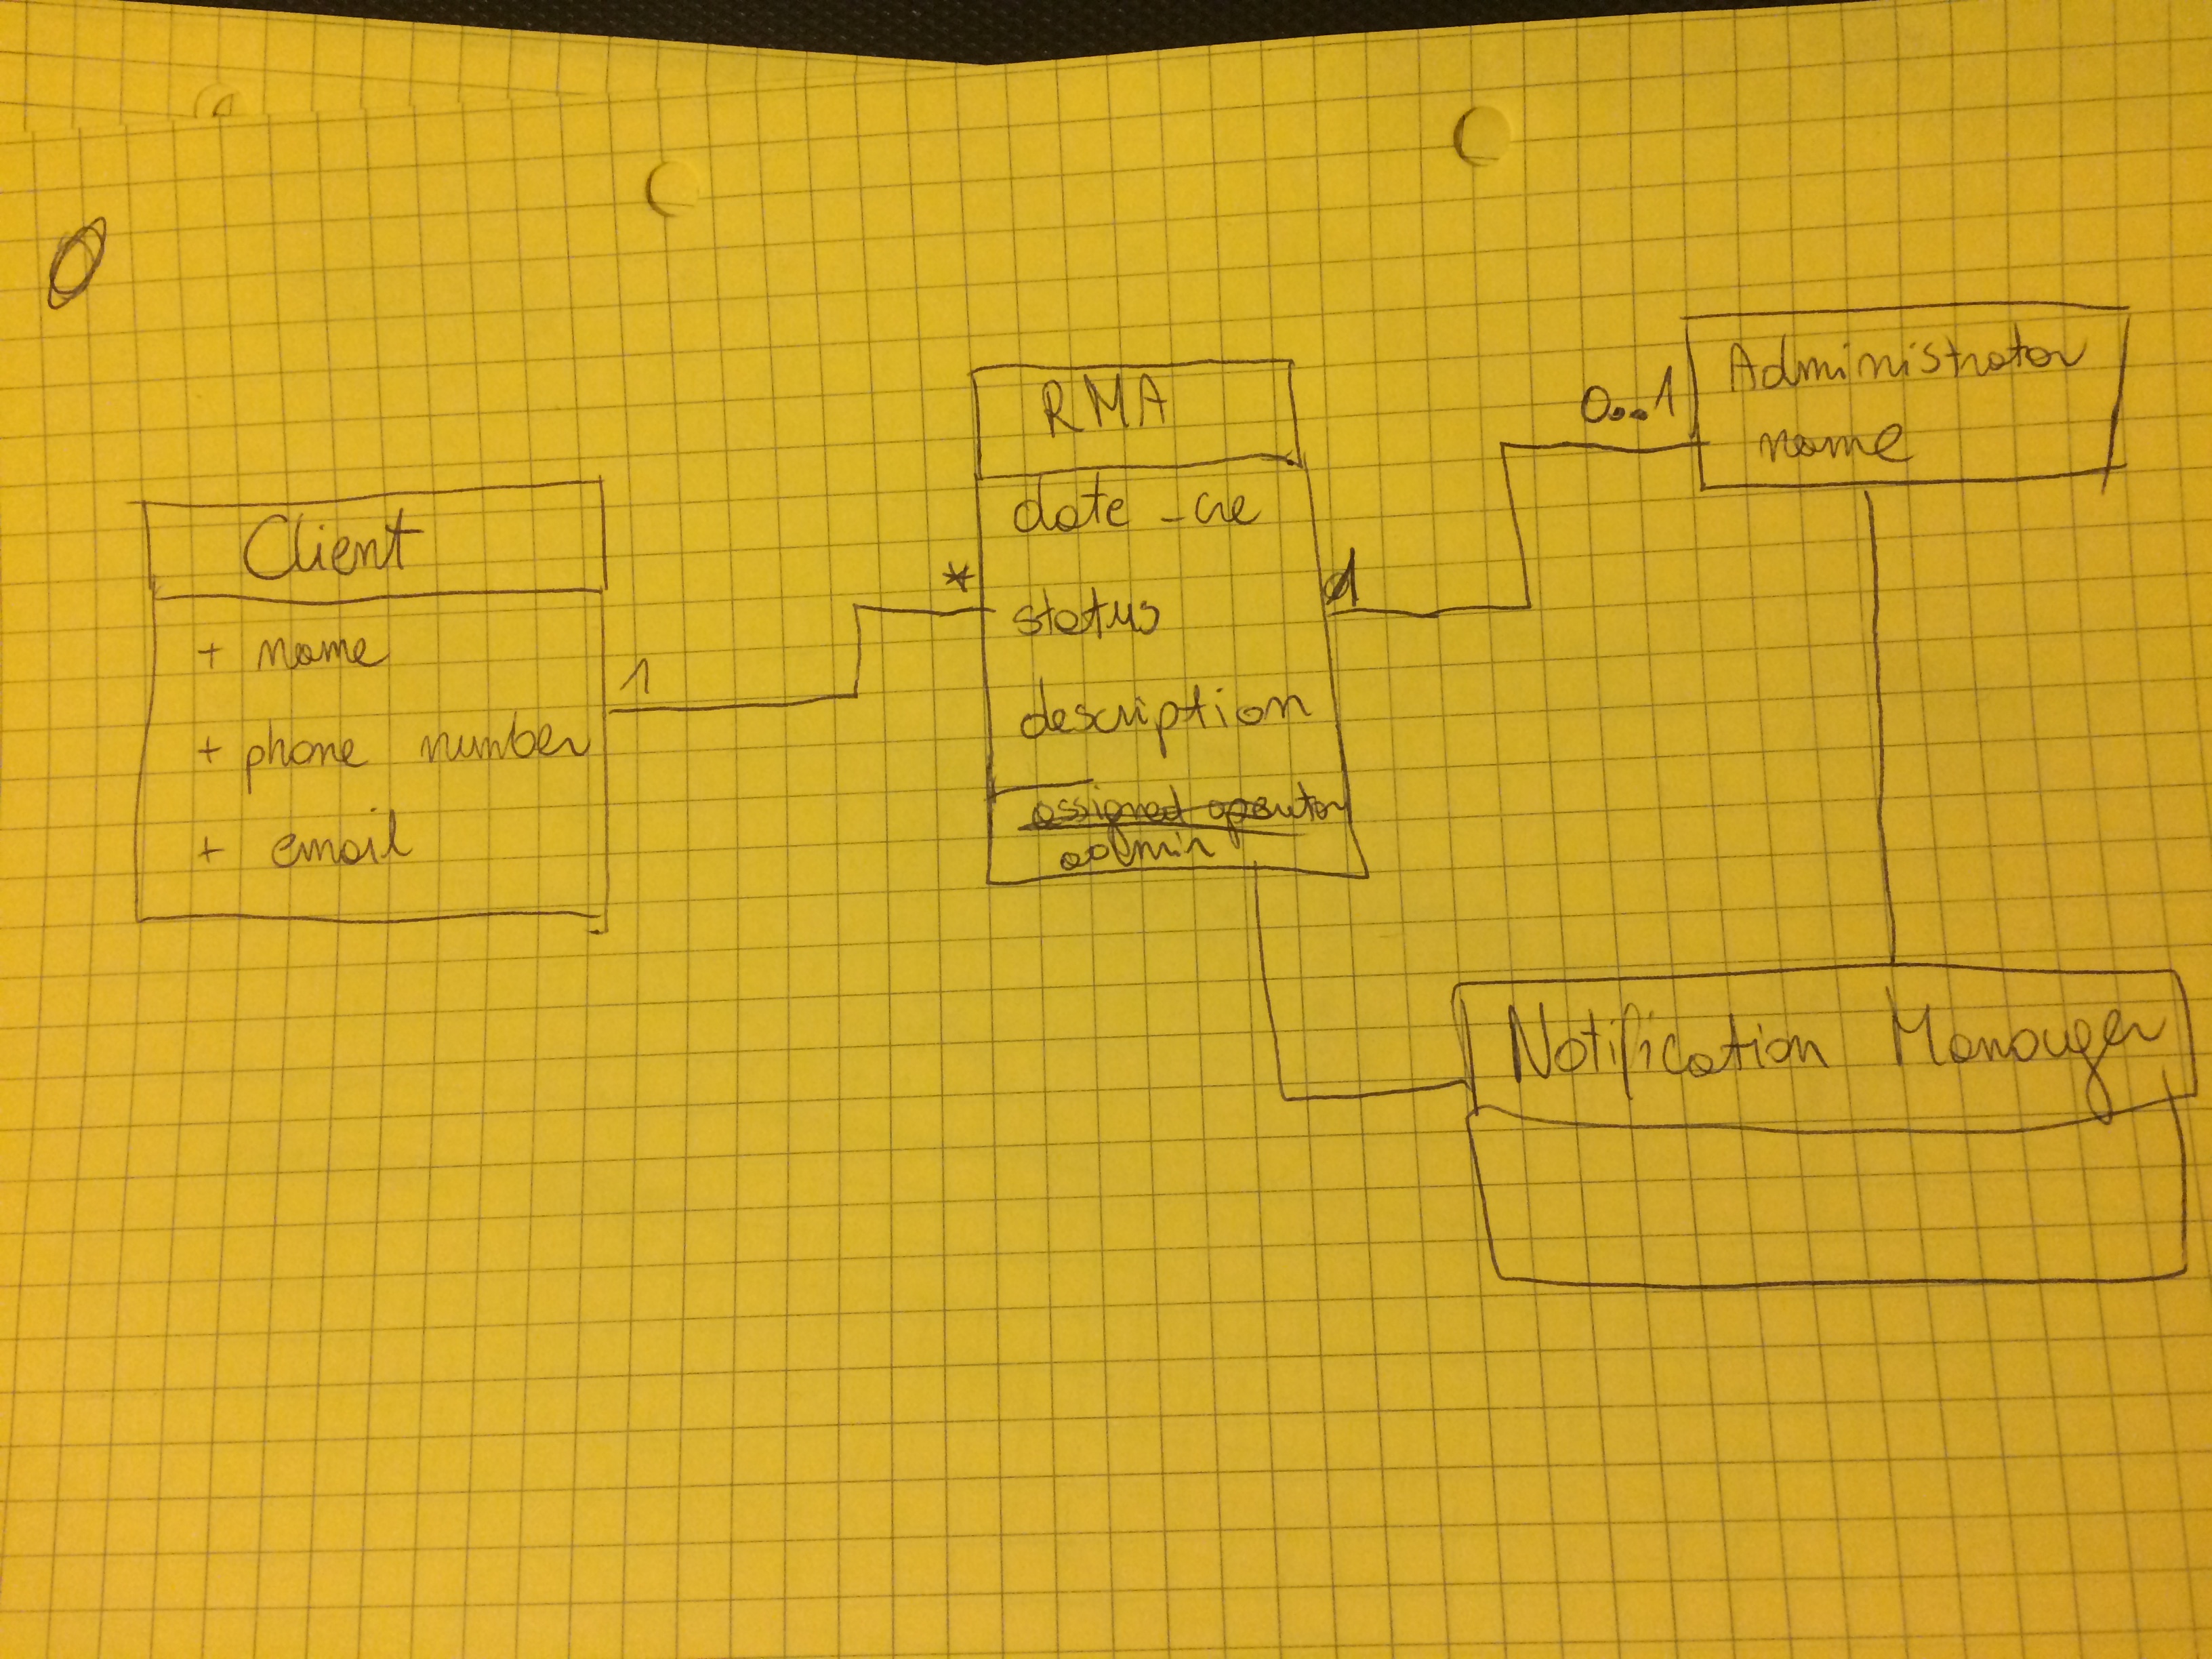 Client
+ name
+ phone number
+ email
1
*
RMA
date-cre
status
description
assigned operator
admin
1
0..1
Administrator
name
Notification Manager